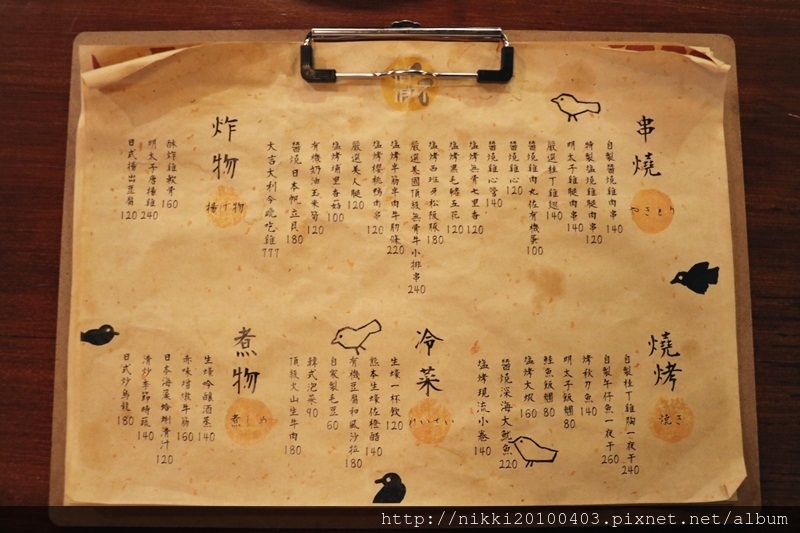 串燒
やきとり
自製醬燒雞肉串 140
特製塩燒雞腿肉串 120
明太子雞腿肉串 140
嚴選桂丁雞翅 140
醬燒雞肉丸佐有機蛋 100
醬燒雞心 120
醬燒雞心管 140
塩烤無骨七里香 120
塩烤黑毛豬五花 120
塩烤西班牙松阪豬 180
嚴選美國頂級無骨牛小排串 240
塩烤半筋半肉牛肋條 220
塩烤櫻桃鴨肉串 120
嚴選美人腿 120
塩烤埔里香菇 100
有機奶油玉米筍 120
醬燒日本帆立貝 180
大吉大利今晚吃雞 777
炸物
揚げ物
酥炸雞軟骨 160
明太子唐揚雞 240
日式揚出豆腐 120
燒烤
焼き
自製桂丁雞胸一夜干 240
自製午仔魚一夜干 260
烤秋刀魚 140
明太子飯糰 80
鮭魚飯糰 80
塩烤大蝦 160
醬燒深海大魷魚 220
塩烤現流小卷 140
冷菜
れいさい
生蠔一杯飲 120
熊本生蠔佐橙醋 140
有機豆腐和風沙拉 180
自家製毛豆 60
韓式泡菜 90
頂級火山生牛肉 180
煮物
煮しめ
生蠔吟釀酒蒸 140
赤味噌燉牛筋 160
日本海菜蛤蜊清汁 120
清炒季節時蔬 140
日式炒烏龍 180
http://nikki20100403.pixnet.net/album